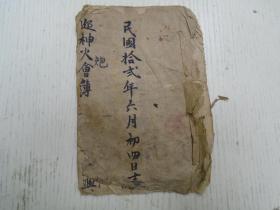 民國拾貳年六月初四日吉
迎神火會簿
炮